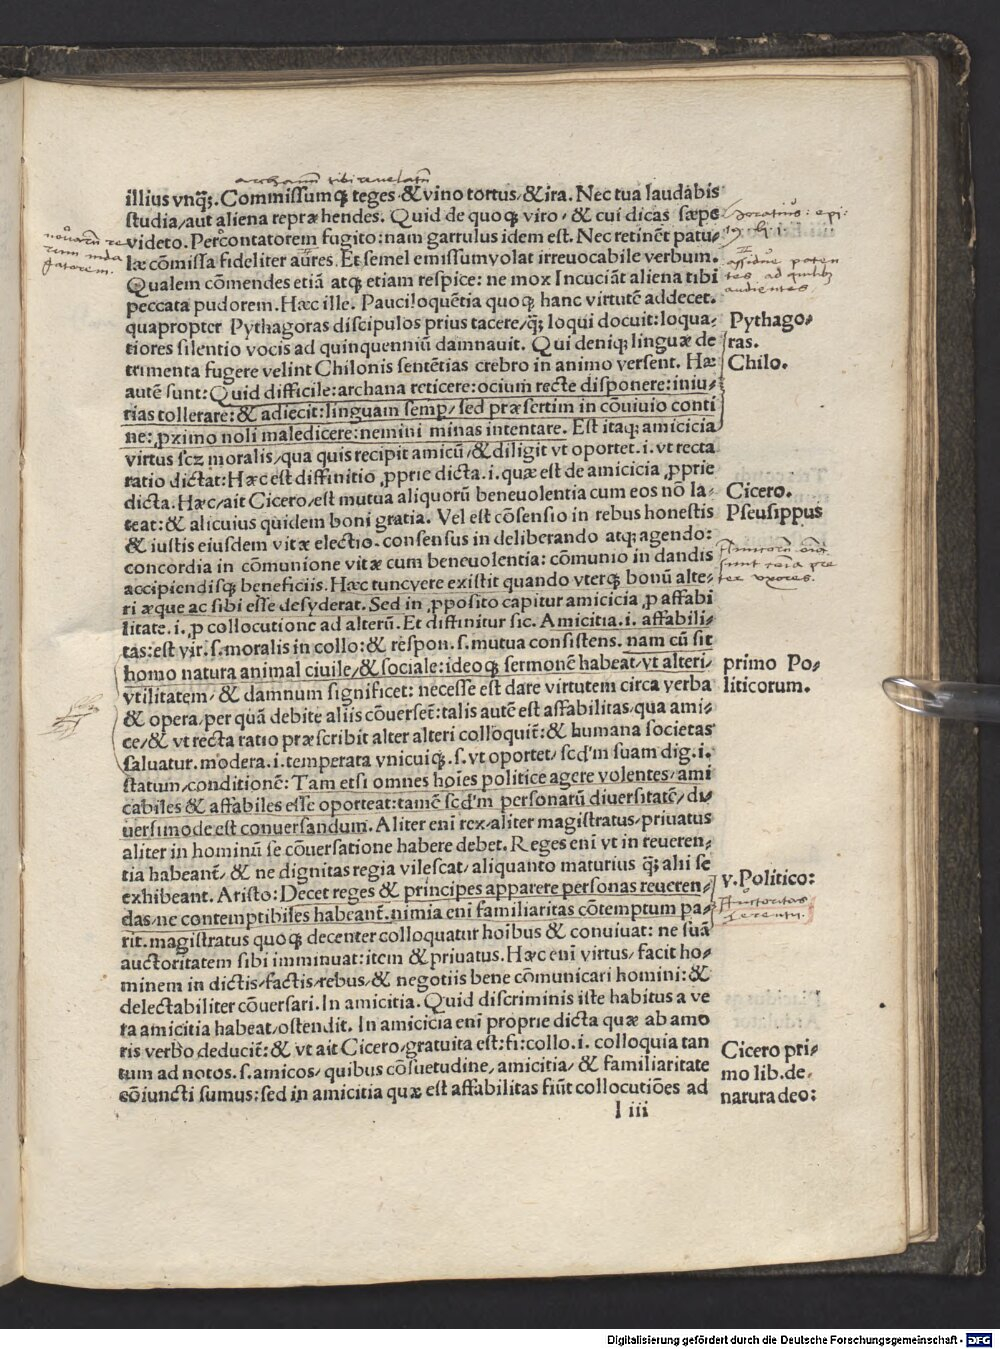 archanum tibi revelatum
illius vnq̃;. Commissumq; teges ⁊ vino tortus/ & ira. Nec tua laudabis
studia/ aut aliena repræhendes. Quid de quoq; viro/ & cui dicas sæpe
videto. Percontatorem fugito: nam garrulus idem est. Nec retinēt patu/
læ cōmissa fideliter aures. Et semel emissum volat irreuocabile verbum.
Qualem cōmendes etiā atq; etiam respice: ne mox Incuciāt aliena tibi
peccata pudorem. Hæc ille. Pauciloquētia quoq; hanc virtutē addecet.
quapropter Pythagoras discipulos prius tacere/ q̃; loqui docuit: loqua/
tiores silentio vocis ad quinquenniū damnauit. Qui deniq; linguæ de
trimenta fugere velint Chilonis sentētias crebro in animo versent. Hæ
autē sunt: Quid difficile: archana reticere: ocium recte disponere: iniu/
rias tollerare: & adiecit: linguam semp/ sed præsertim in cōuiuio conti
ne: ꝓximo noli maledicere: nemini minas intentare. Est itaq; amicicia
virtus scz moralis/ qua quis recipit amicū/ & diligit vt oportet .i. vt recta
ratio dictat: Hæc est diffinitio ꝓprie dicta .i. quæ est de amicicia ꝓprie
dicta. Hæc/ ait Cicero/ est mutua aliquorū beneuolentia cum eos nō la/
teat: & alicuius quidem boni gratia. Vel est cōsensio in rebus honestis
& iustis eiusdem vitæ electio. consensus in deliberando atq; agendo:
concordia in cōmunione vitæ cum beneuolentia: cōmunio in dandis
accipiendisq; beneficiis. Hæc tunc vere existit quando vterq; bonū alte/
ri æque ac sibi esse desyderat. Sed in ꝓposito capitur amicicia ꝓ affabi
litate .i. ꝓ collocutione ad alterū. Et diffinitur sic. Amicitia .i. affabili/
tas: est vir. s. moralis in collo: & respon. s. mutua consistens. nam cū sit
homo natura animal ciuile/ & sociale: ideoq; sermonē habeat/ vt alteri/
vtilitatem/ & damnum significet: necesse est dare virtutem circa verba
& opera/ per quā debite aliis cōuerset̄: talis autē est affabilitas/ qua ami/
ce/ & vt recta ratio præscribit alter alteri colloquit̄: & humana societas
saluatur. modera .i. temperata vnicuiq; .s. vt oportet/ scd'm suam dig .i.
statum/ conditionē: Tam etsi omnes hoīes politice agere volentes/ ami
cabiles & affabiles esse oporteat: tamē scd'm personarū diuersitatē/ di/
uersimode est conuersandum. Aliter enī rex/ aliter magistratus/ priuatus
aliter in hominū se cōuersatione habere debet. Reges enī vt in reueren/
tia habeant̄/ & ne dignitas regia vilescat/ aliquanto maturius q̃; alii se
exhibeant. Aristo: Decet reges & principes apparere personas reueren/
das/ ne contemptibiles habeant̄. nimia enī familiaritas cōtemptum pa/
rit. magistratus quoq; decenter colloquatur hoībus & conuiuat: ne suā
auctoritatem sibi imminuat: item & priuatus. Hæc enī virtus/ facit ho/
minem in dictis/ factis/ rebus/ & negotiis bene cōmunicari homini: &
delectabiliter cōuersari. In amicitia. Quid discriminis iste habitus a ve
ra amicitia habeat/ ostendit. In amicicia enī proprie dicta quæ ab amo
ris verbo deducit̄: & vt ait Cicero/ gratuita est: fi: collo .i. colloquia tan
tum ad notos .s. amicos/ quibus cōsuetudine/ amicitia/ & familiaritate
cōiuncti sumus: sed in amicitia quæ est affabilitas fiūt collocutiōes ad
I iii
Horatius: epi:
assidue paten
tes ad quilib;
audientes.
Pythago/
ras.
Chilo.
Cicero.
Pseusippus
Amicorū oīa
sunt cōīa pre
ter vxores.
primo Po/
liticorum.
v. Politico:
Auctoritas
Cicero pri/
mo lib. de
natura deo:
Digitalisierung gefördert durch die Deutsche Forschungsgemeinschaft - DFG